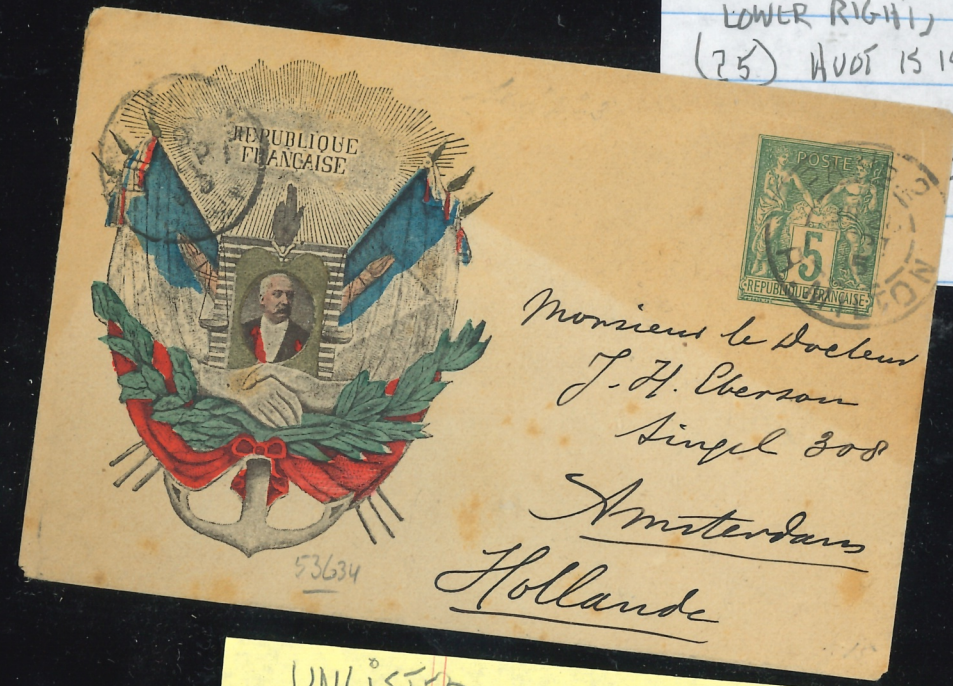 LOWER RIGHT,
(25) HUOT IS
REPUBLIQUE
FRANÇAISE
POSTES
5
REPUBLIQUE FRANÇAISE
Monsieur le Docteur
J. H. Eberson
Singel 308
Amsterdam
Hollande
53634
UNLISTED